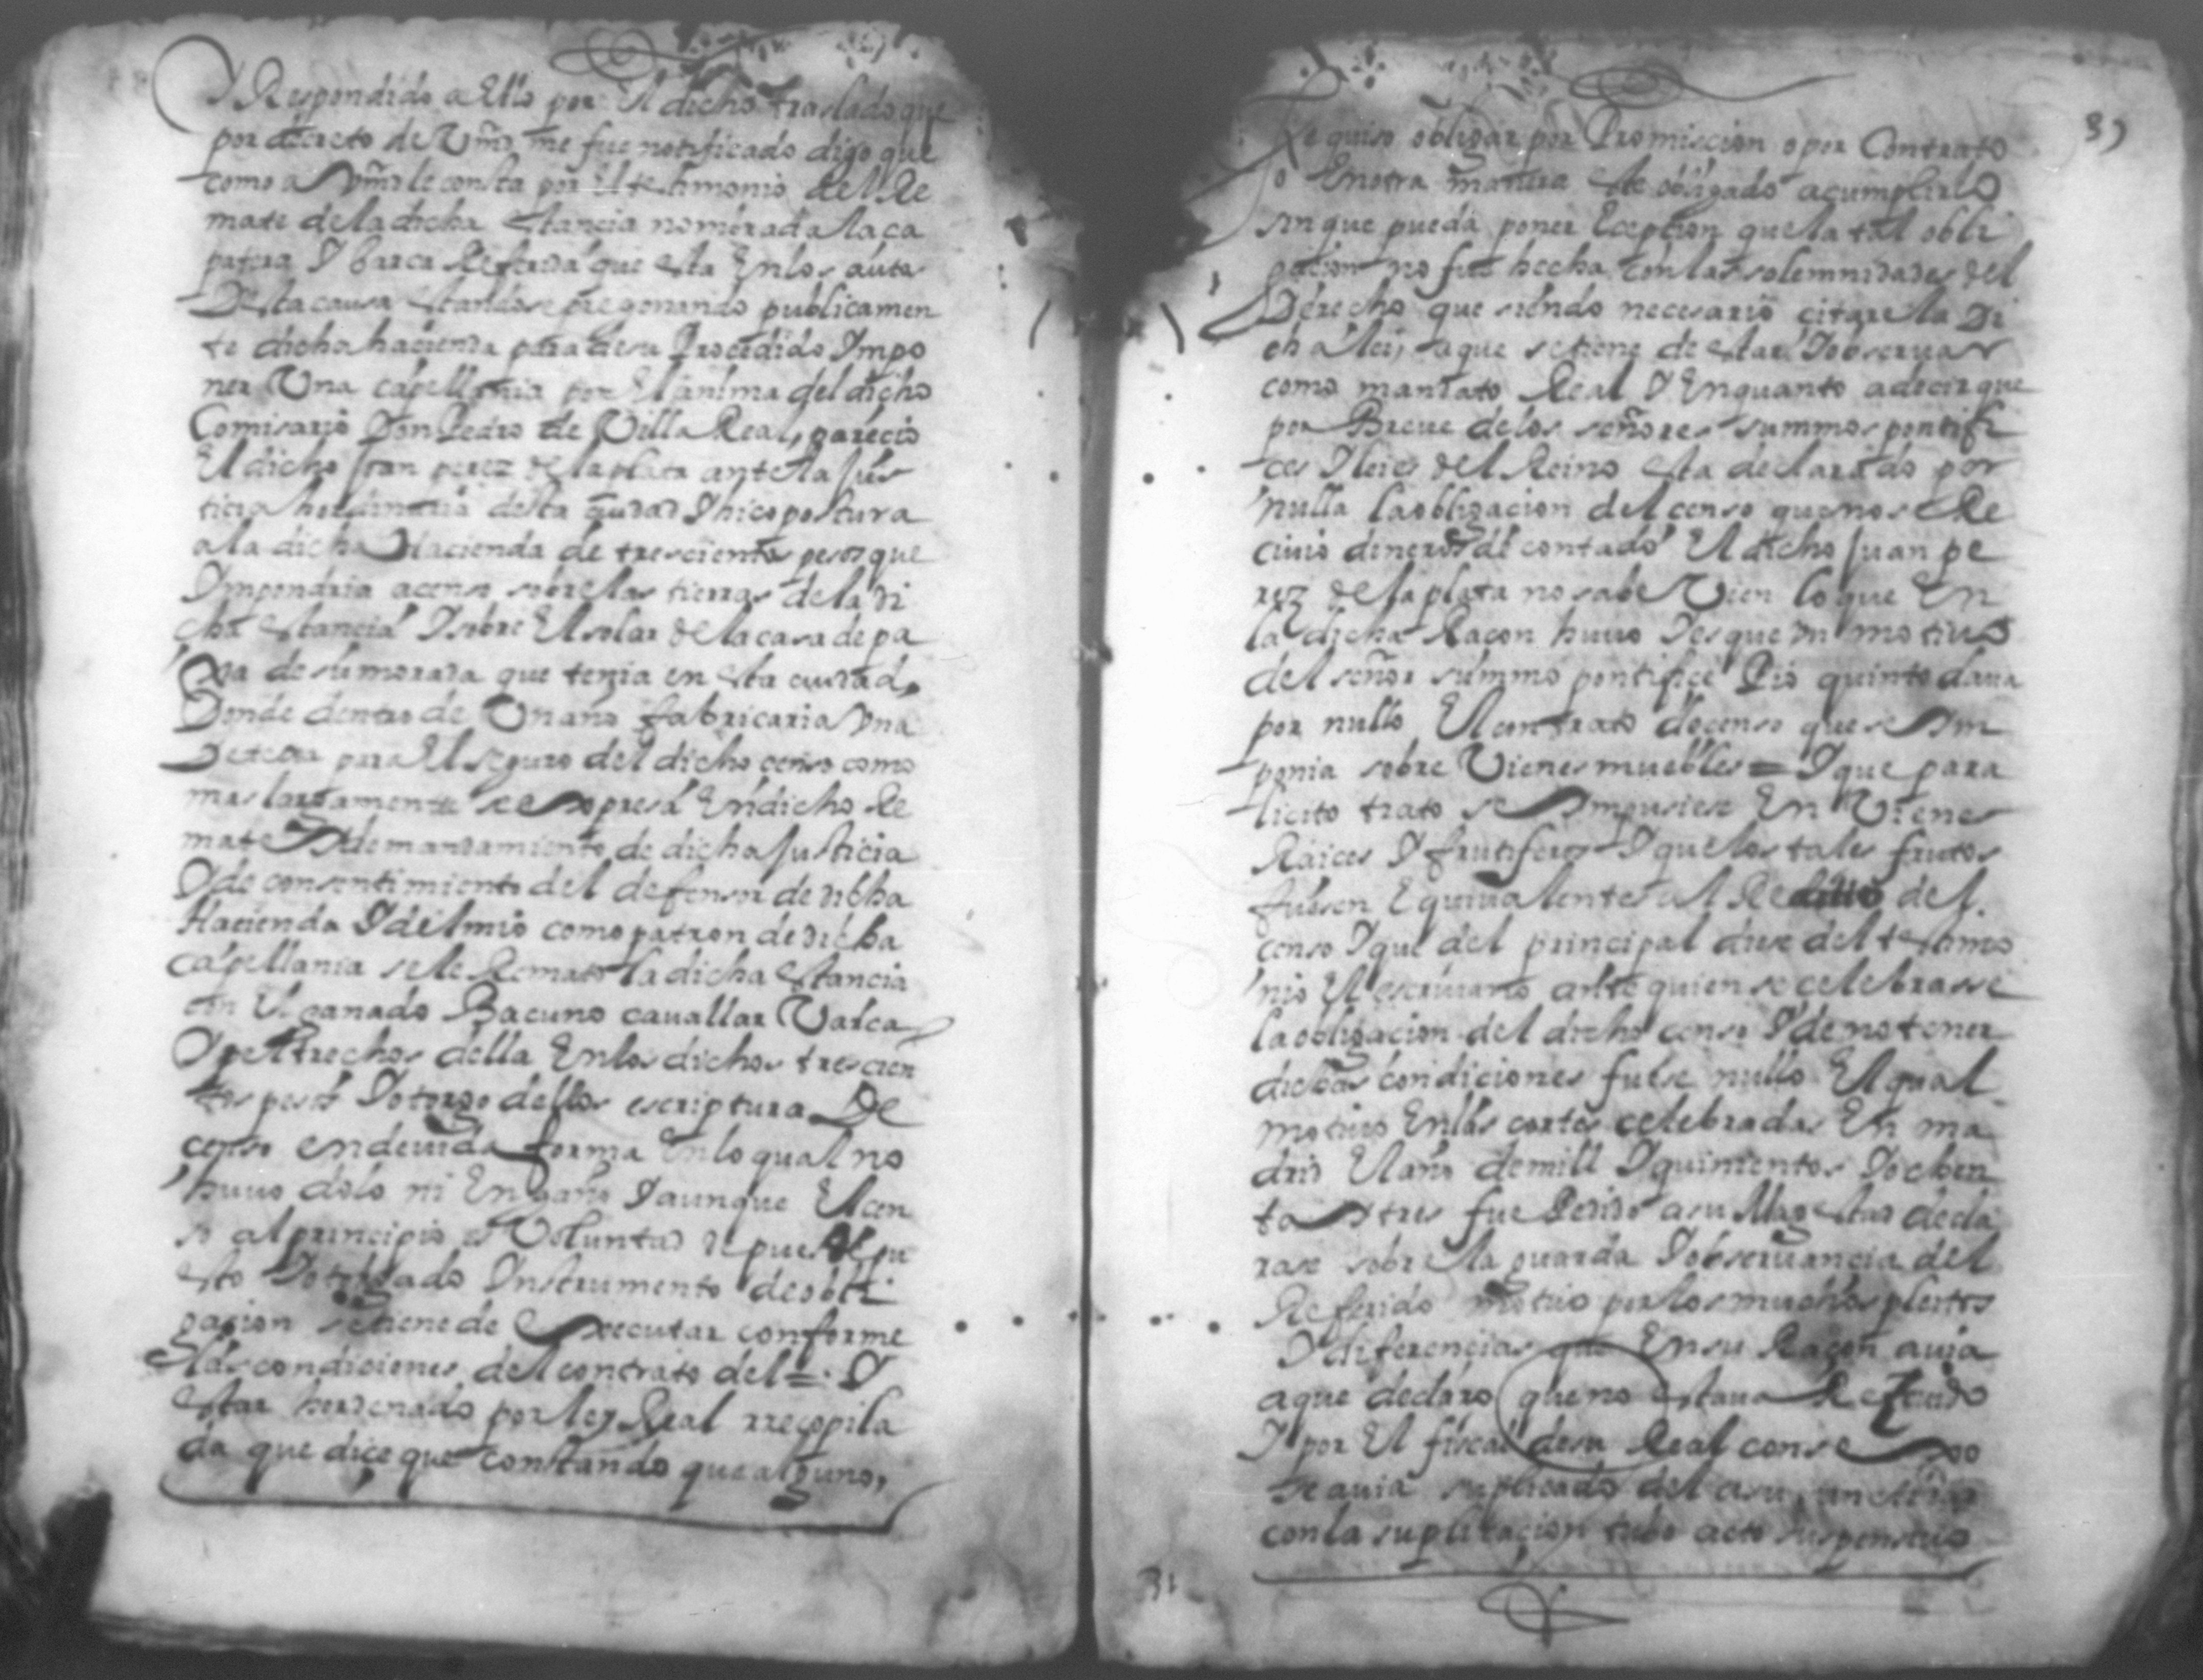 Y Respondido a Ello por El dicho traslado que
por decreto de Vmd me fue notificado digo que
como a Vmd le consta por El testimonio del Re
mate de la dicha estancia nombrada la ca
patera Y barca Referida que esta En los autos
Desta causa estandose pregonando publicamen
te dicha hacienda para de su Procedido Impo
ner Una capellania por El anima del dicho
Comisario Don Pedro de Villa Real, parecio
El dicho Juan perez de la plata ante la Jus
ticia hordinaria desta ciudad Y hico postura
a la dicha Hacienda de trescientos pesos que
Impondria a censo sobre las tierras de la di
cha estancia Y sobre El solar de la casa de pa
xa de su morada que tenia en esta ciudad,
Donde dentro de Un año fabricaria Una
de texa para El seguro del dicho censo como
mas largamente se expresa En dicho Re
mate Y de mandamiento de dicha Justicia
Y de consentimiento del defensor de dicha
Hacienda Y del mio como patron de dicha
capellania se le Remato la dicha estancia
con El ganado Bacuno cauallar Varca
Y pertrechos della En los dichos trescien
tos pesos Y otorgo dellos escriptura De
censo en deuida forma En lo qual no
huuo dolo ni Engaño Y aunque El cen
so al principio es Voluntad despues de pu
esto Y otorgado Instrumento de obli
gacion se tiene de Executar conforme
a las condiciones del contrato del = Y
estar hordenado por ley Real rrecopila
da que dice que constando que alguno,
39
se quiso obligar por Promission o por Contrato
o En otra manera este obligado a cumplirlo
sin que pueda poner Ecepcion que la tal obli
gacion no fue hecha con las solemnidades del
Derecho que siendo necesario citare la Di
cha lei, a que se tiene de estar Y obseruar
como mandato Real Y En quanto a decir que
por Breue de los señores summos pontifi
ces Y leies del Reino esta declarado por
nulla la obligacion del censo que no se Re
ciuio dineros de contado El dicho Juan pe
rez de la plata no sabe Vien lo que En
la dicha Racon huuo Y es que Un motiuo
del señor summo pontifice Pio quinto daua
por nullo El contrato de censo que se Im
ponia sobre Vienes muebles = Y que para
licito trato se Impusiese En Vienes
Raices Y frutiferos Y que los tales frutos
fuesen Equiualentes al Redito del
censo Y que del principal diese del testimo
nio El escriuano ante quien se celebrasse
la obligacion del dicho censo Y de no tener
dichas condiciones fuese nullo El qual
motiuo En las cortes celebradas En ma
drid El año de mill Y quinientos Y ochen
ta Y tres fue Pedido a su Magestad decla
rase sobre la guarda Y obseruancia del
Referido motuo por los muchos pleitos
Y diferencias que En su Racon auia
a que declaro que no estaua Receuido
Y por El fiscal de su Real consexo
se auia suplicado del a su
con la suplicacion tubo acto suspensiuo
31